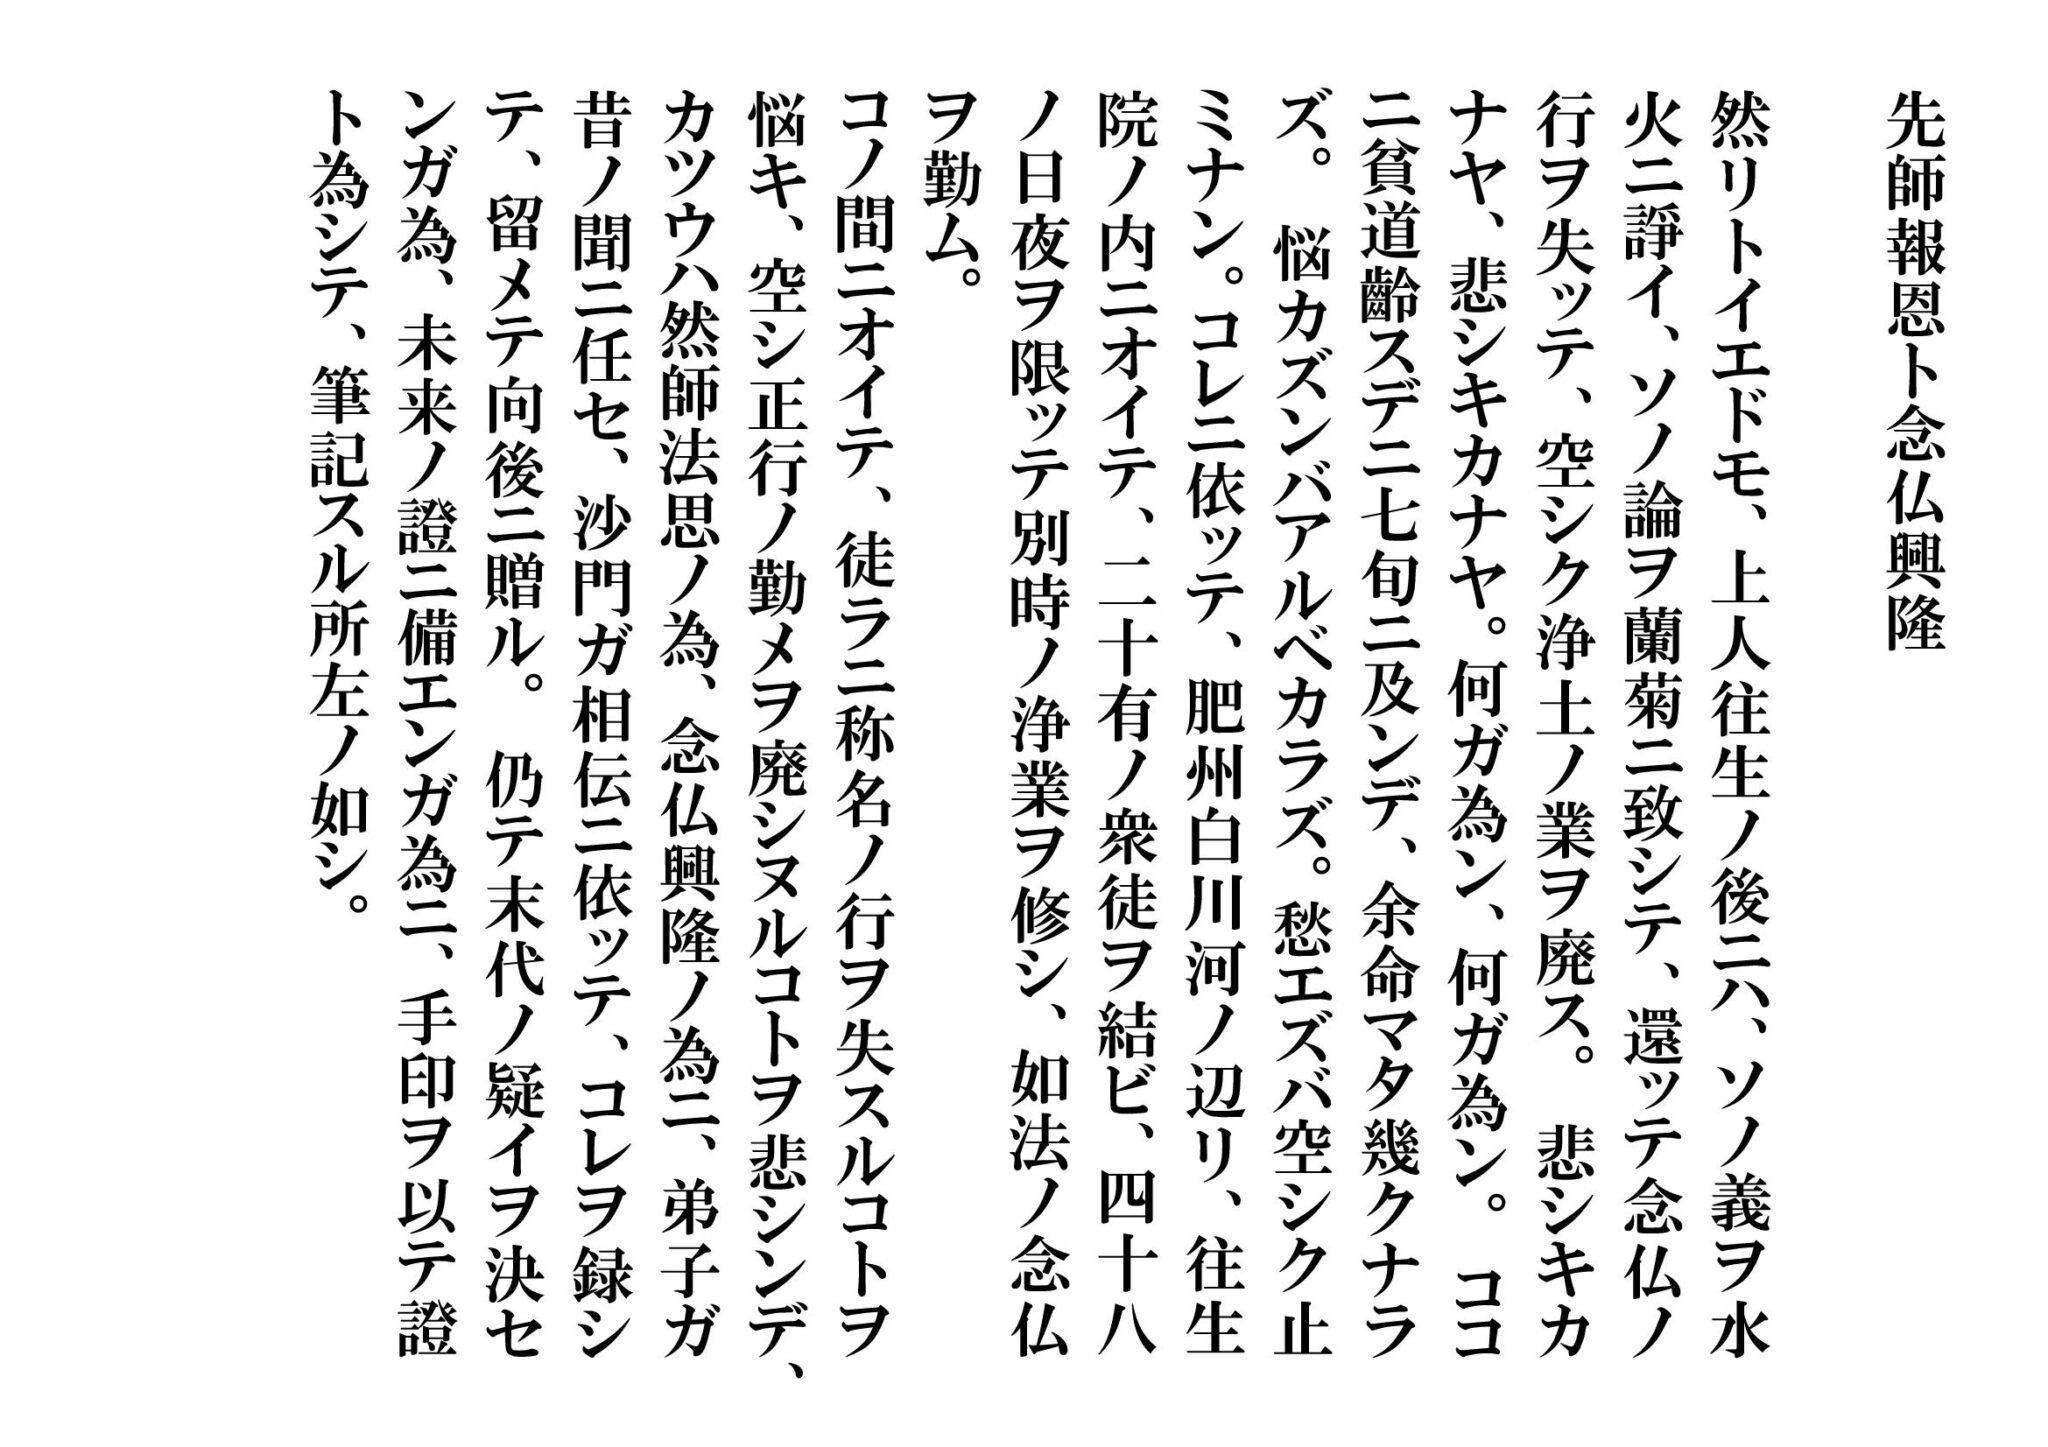 先師報恩ト念仏興隆
然リトイエドモ、上人往生ノ後ニハ、ソノ義ヲ水
火ニ諍イ、ソノ論ヲ蘭菊ニ致シテ、還ッテ念仏ノ
行ヲ失ッテ、空シク浄土ノ業ヲ廃ス。　悲シキカ
ナヤ、悲シキカナヤ。何ガ為ン、何ガ為ン。　ココ
ニ貧道齢スデニ七旬ニ及ンデ、余命マタ幾クナラ
ズ。　悩カズンバアルベカラズ。愁エズバ空シク止
ミナン。コレニ依ッテ、肥州白川河ノ辺リ、往生
院ノ内ニオイテ、二十有ノ衆徒ヲ結ビ、四十八
ノ日夜ヲ限ッテ別時ノ浄業ヲ修シ、如法ノ念仏
ヲ勤ム。
コノ間ニオイテ、徒ラニ称名ノ行ヲ失スルコトヲ
悩キ、空シ正行ノ勤メヲ廃シヌルコトヲ悲シンデ、
カツウハ然師法思ノ為、念仏興隆ノ為ニ、弟子ガ
昔ノ聞ニ任セ、沙門ガ相伝ニ依ッテ、コレヲ録シ
テ、留メテ向後ニ贈ル。　仍テ末代ノ疑イヲ決セ
ンガ為、未来ノ證ニ備エンガ為ニ、手印ヲ以テ證
ト為シテ、筆記スル所左ノ如シ。